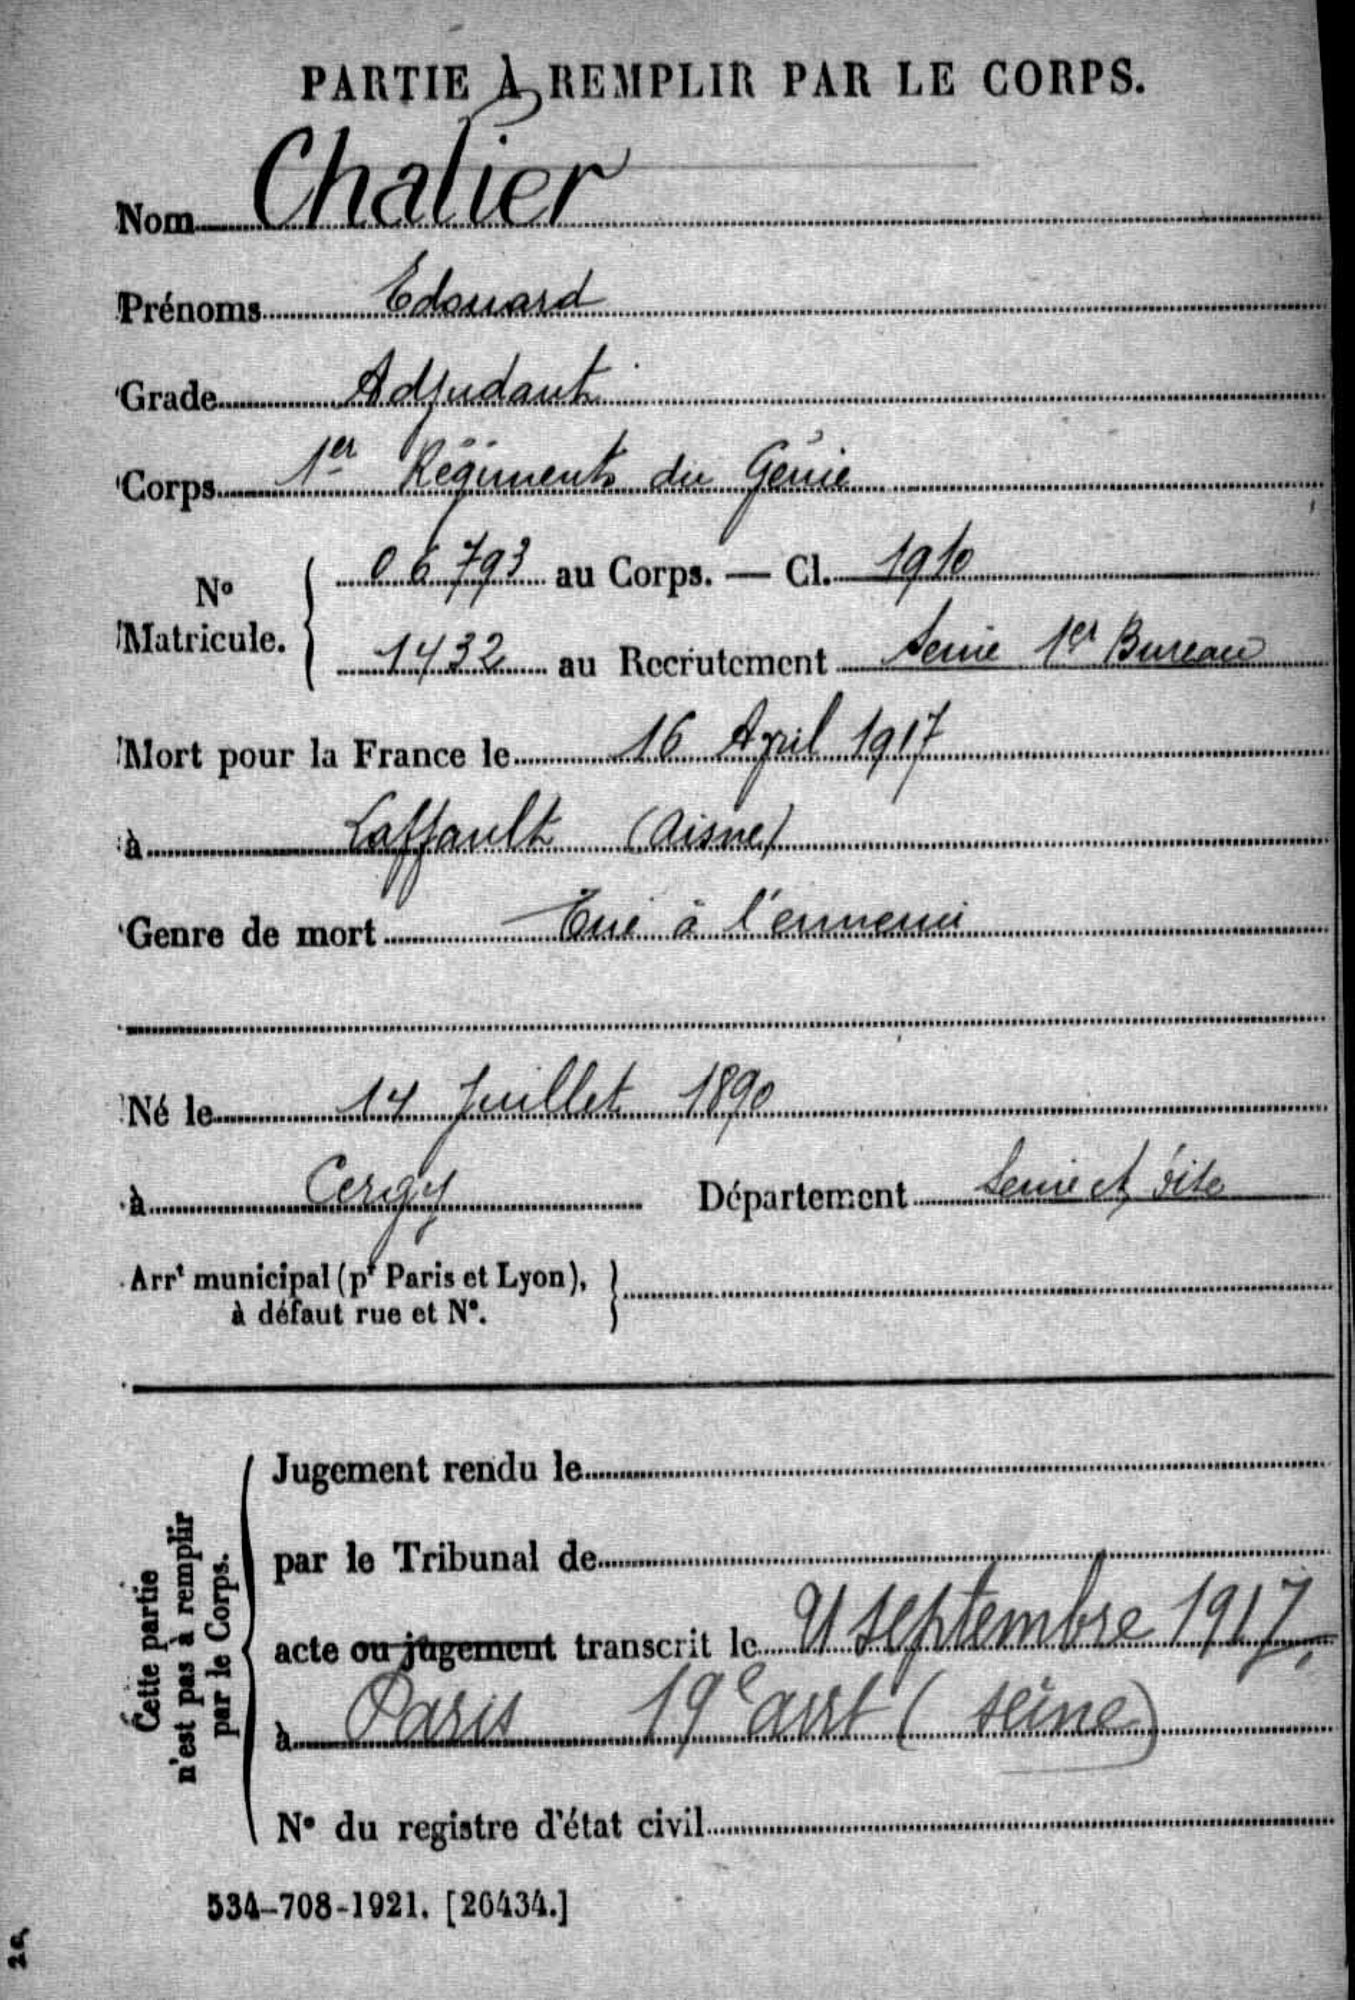 PARTIE À REMPLIR PAR LE CORPS.
Nom Chalier
Prénoms Edouard
Grade Adjudant
Corps 1er Régiment du Génie
No Matricule. 06793 au Corps. — Cl. 1910
1432 au Recrutement Seine 1er Bureau
Mort pour la France le 16 April 1917
à Laffault (Aisne)
Genre de mort Tué à l'ennemi
Né le 14 Juillet 1890
à Cergy Département Seine et Oise
Arrt municipal (pr Paris et Lyon),
à défaut rue et N°.
Cette partie
n'est pas à remplir
par le Corps.
Jugement rendu le
par le Tribunal de
acte ou jugement transcrit le 21 septembre 1917
à Paris 19e arrt (seine)
N° du registre d'état civil
534-708-1921. [26434.]